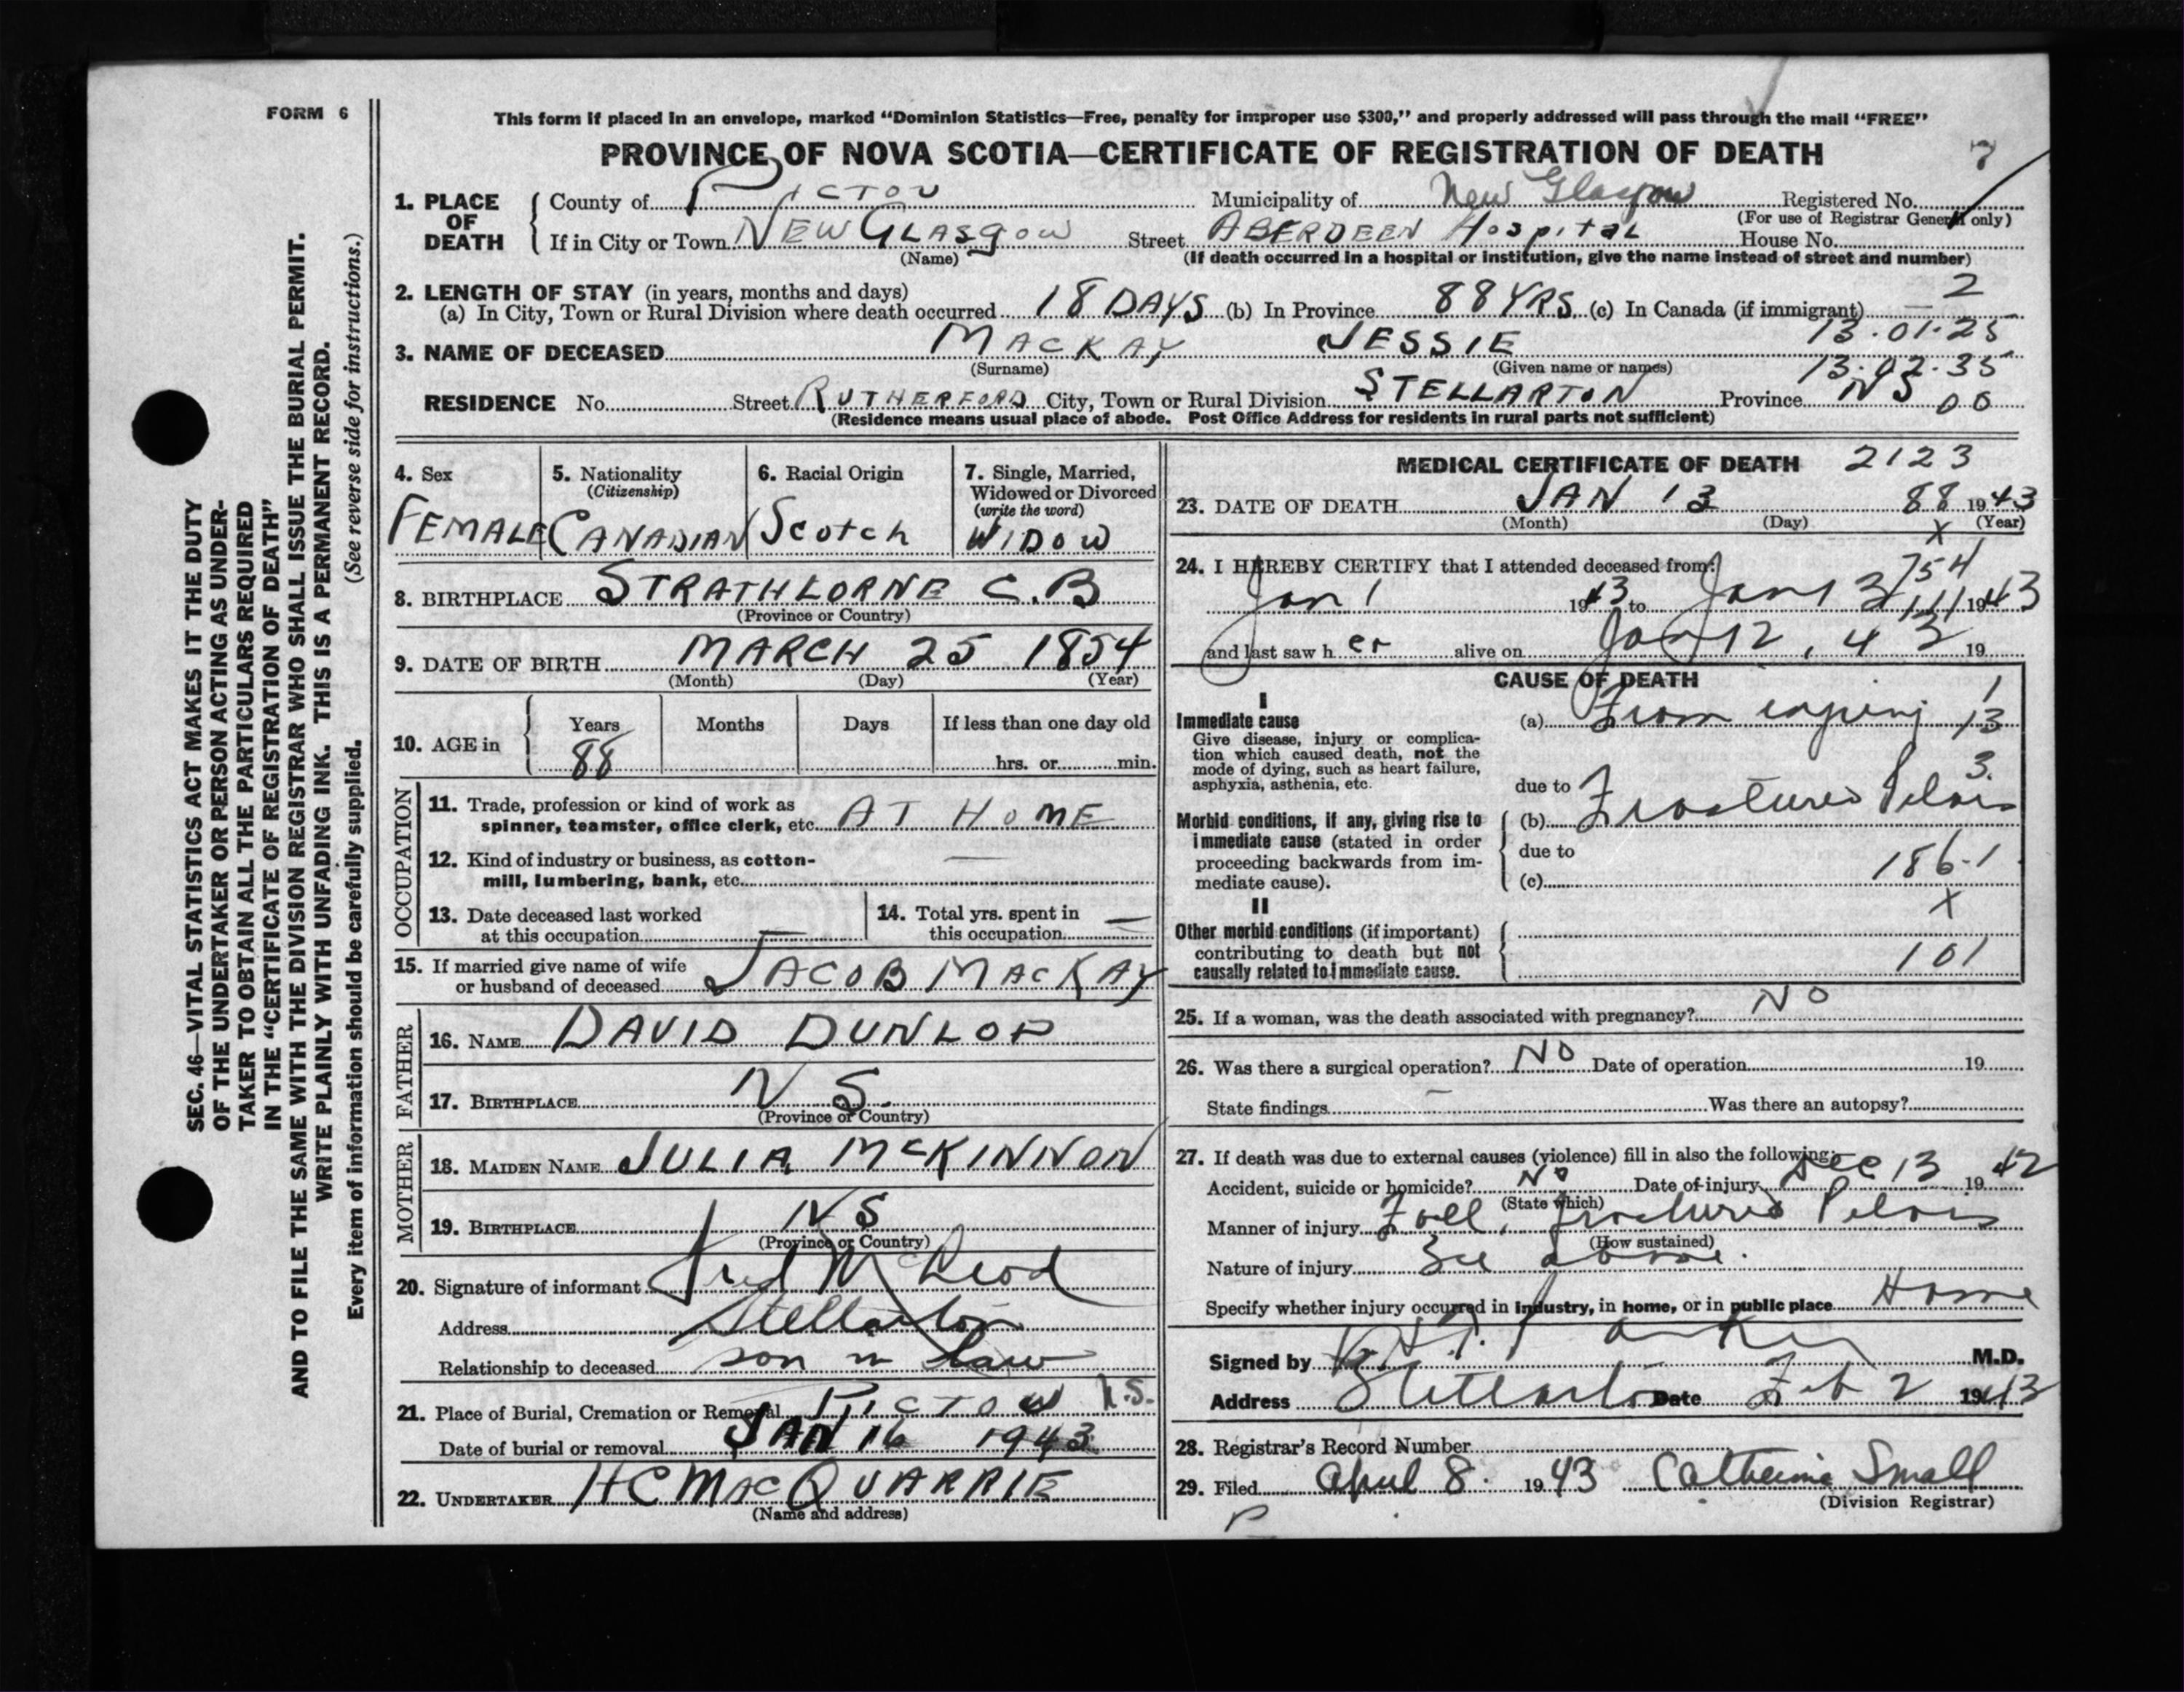 FORM 6
This form if placed in an envelope, marked "Dominion Statistics—Free, penalty for improper use $300," and properly addressed will pass through the mail "FREE"
PROVINCE OF NOVA SCOTIA—CERTIFICATE OF REGISTRATION OF DEATH
7
1. PLACE OF DEATH
County of PICTOU Municipality of New Glasgow Registered No.
(For use of Registrar General only)
If in City or Town NEW GLASGOW Street ABERDEEN Hospital House No.
(Name) (If death occurred in a hospital or institution, give the name instead of street and number)
2. LENGTH OF STAY (in years, months and days)
(a) In City, Town or Rural Division where death occurred 18 DAYS (b) In Province 88 YRS (c) In Canada (if immigrant) — 2
13.01.25
3. NAME OF DECEASED MACKAY JESSIE
(Surname) (Given name or names)
13.02.35
RESIDENCE No. Street RUTHERFORD City, Town or Rural Division STELLARTON Province NS 00
(Residence means usual place of abode. Post Office Address for residents in rural parts not sufficient)
SEC. 46—VITAL STATISTICS ACT MAKES IT THE DUTY
OF THE UNDERTAKER OR PERSON ACTING AS UNDER-
TAKER TO OBTAIN ALL THE PARTICULARS REQUIRED
IN THE "CERTIFICATE OF REGISTRATION OF DEATH"
AND TO FILE THE SAME WITH THE DIVISION REGISTRAR WHO SHALL ISSUE THE BURIAL PERMIT.
WRITE PLAINLY WITH UNFADING INK. THIS IS A PERMANENT RECORD.
Every item of information should be carefully supplied. (See reverse side for instructions.)
4. Sex
FEMALE
5. Nationality
(Citizenship)
CANADIAN
6. Racial Origin
Scotch
7. Single, Married,
Widowed or Divorced
(write the word)
WIDOW
8. BIRTHPLACE STRATHLORNE C.B
(Province or Country)
9. DATE OF BIRTH MARCH 25 1854
(Month) (Day) (Year)
10. AGE in Years Months Days If less than one day old
88 hrs. or min.
OCCUPATION
11. Trade, profession or kind of work as
spinner, teamster, office clerk, etc. AT HOME
12. Kind of industry or business, as cotton-
mill, lumbering, bank, etc. —
13. Date deceased last worked
at this occupation —
14. Total yrs. spent in
this occupation —
15. If married give name of wife
or husband of deceased JACOB MACKAY
FATHER
16. NAME DAVID DUNLOP
17. BIRTHPLACE N S.
(Province or Country)
MOTHER
18. MAIDEN NAME JULIA McKINNON
19. BIRTHPLACE NS
(Province or Country)
20. Signature of informant Fred McLeod
Address Stellarton
Relationship to deceased son in law
21. Place of Burial, Cremation or Removal PICTOU N.S.
Date of burial or removal JAN 16 1943
22. UNDERTAKER HC MACQUARRIE
(Name and address)
MEDICAL CERTIFICATE OF DEATH 2123
23. DATE OF DEATH JAN 13 88 1943
(Month) (Day) X (Year)
24. I HEREBY CERTIFY that I attended deceased from: 754
Jan 1 1943 to Jan 13 1943
and last saw h er alive on Jan 12, 43 19
CAUSE OF DEATH
I
Immediate cause
Give disease, injury or complica-
tion which caused death, not the
mode of dying, such as heart failure,
asphyxia, asthenia, etc.
(a) From injury 1
13
3.
due to
Morbid conditions, if any, giving rise to
immediate cause (stated in order
proceeding backwards from im-
mediate cause).
(b) Fractured Pelvis
due to
(c) 186-1
X
II
Other morbid conditions (if important)
contributing to death but not
causally related to immediate cause.
101
25. If a woman, was the death associated with pregnancy? NO
26. Was there a surgical operation? NO Date of operation 19
State findings — Was there an autopsy?
27. If death was due to external causes (violence) fill in also the following:
Accident, suicide or homicide? No Date of injury Dec 13 1942
(State which)
Manner of injury Fall, fractured Pelvis
(How sustained)
Nature of injury See above.
Specify whether injury occurred in industry, in home, or in public place Home
Signed by M.D.
Address Stellarton Date Feb 2 1943
28. Registrar's Record Number
29. Filed April 8 1943 Catherine Small
(Division Registrar)
P